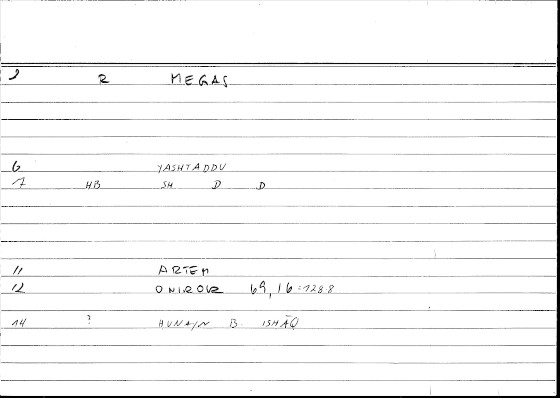 2 R MEGAS
6 YASHTADDU
7 HB SH D D
11 ARTEM
12 ONIROCR 69,16=128.8
14 ? HUNAYN B. ISHĀQ